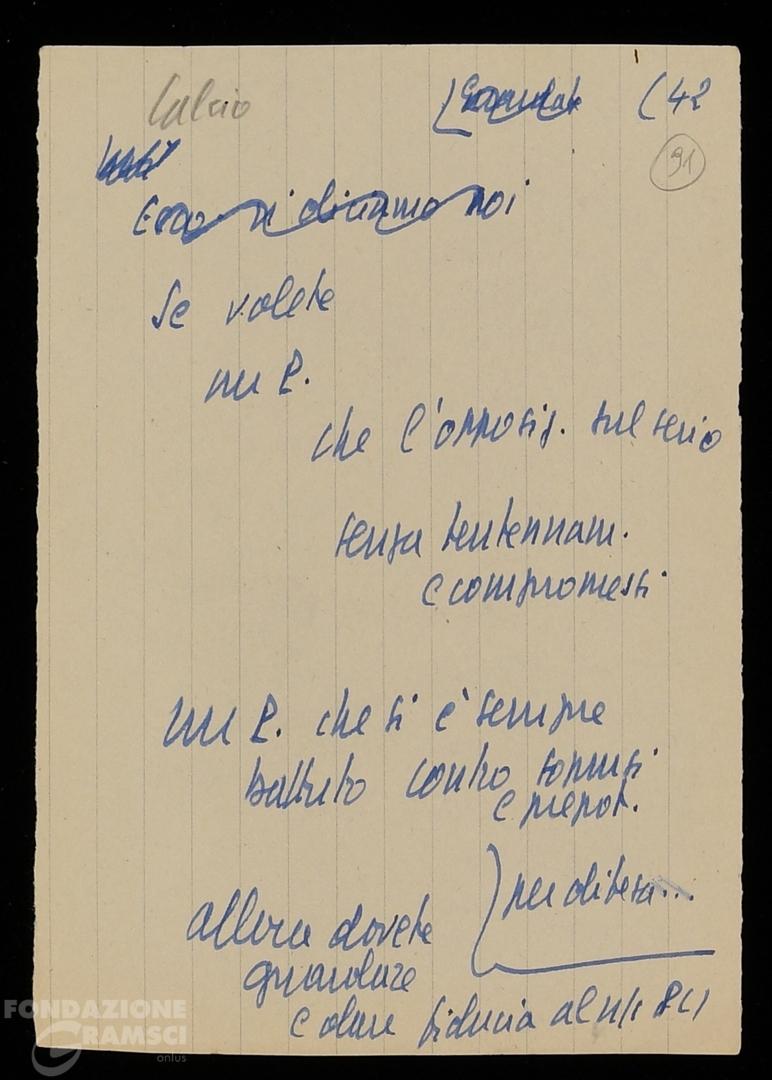 Calcio
(42
91
Ecco vi diciamo noi
Se volete
un P.
che l'opposiz. sul serio
senza tentennam.
e compromessi
un P. che si è sempre
battuto contro soprusi
e prepot.
per difesa...
allora dovete
guardare
e dare fiducia al n/s PCI
FONDAZIONE
GRAMSCI
onlus